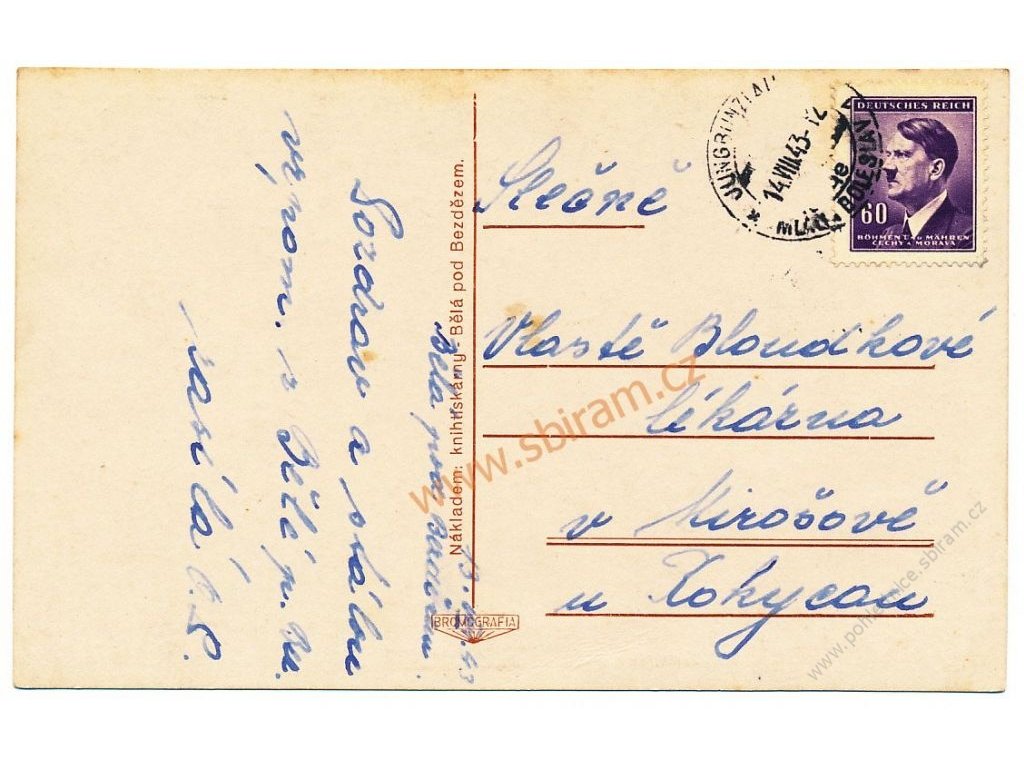 Pozdrav a stálou
vzpom. z Bělé p. Bez.
zasílá
Bělá pod Bezdězem
13. VIII. 43
Nákladem: knihtiskárny - Bělá pod Bezdězem.
BROMOGRAFIA
JUNGBUNZLAU
14.VIII.43-12
MLADÁ BOLESLAV
DEUTSCHES REICH
60
BÖHMEN u. MÄHREN
ČECHY a MORAVA
Slečně
Vlastě Bloudkové
lékárna
v Mirošově
u Rokycan
www.sbiram.cz
www.pohlednice.sbiram.cz